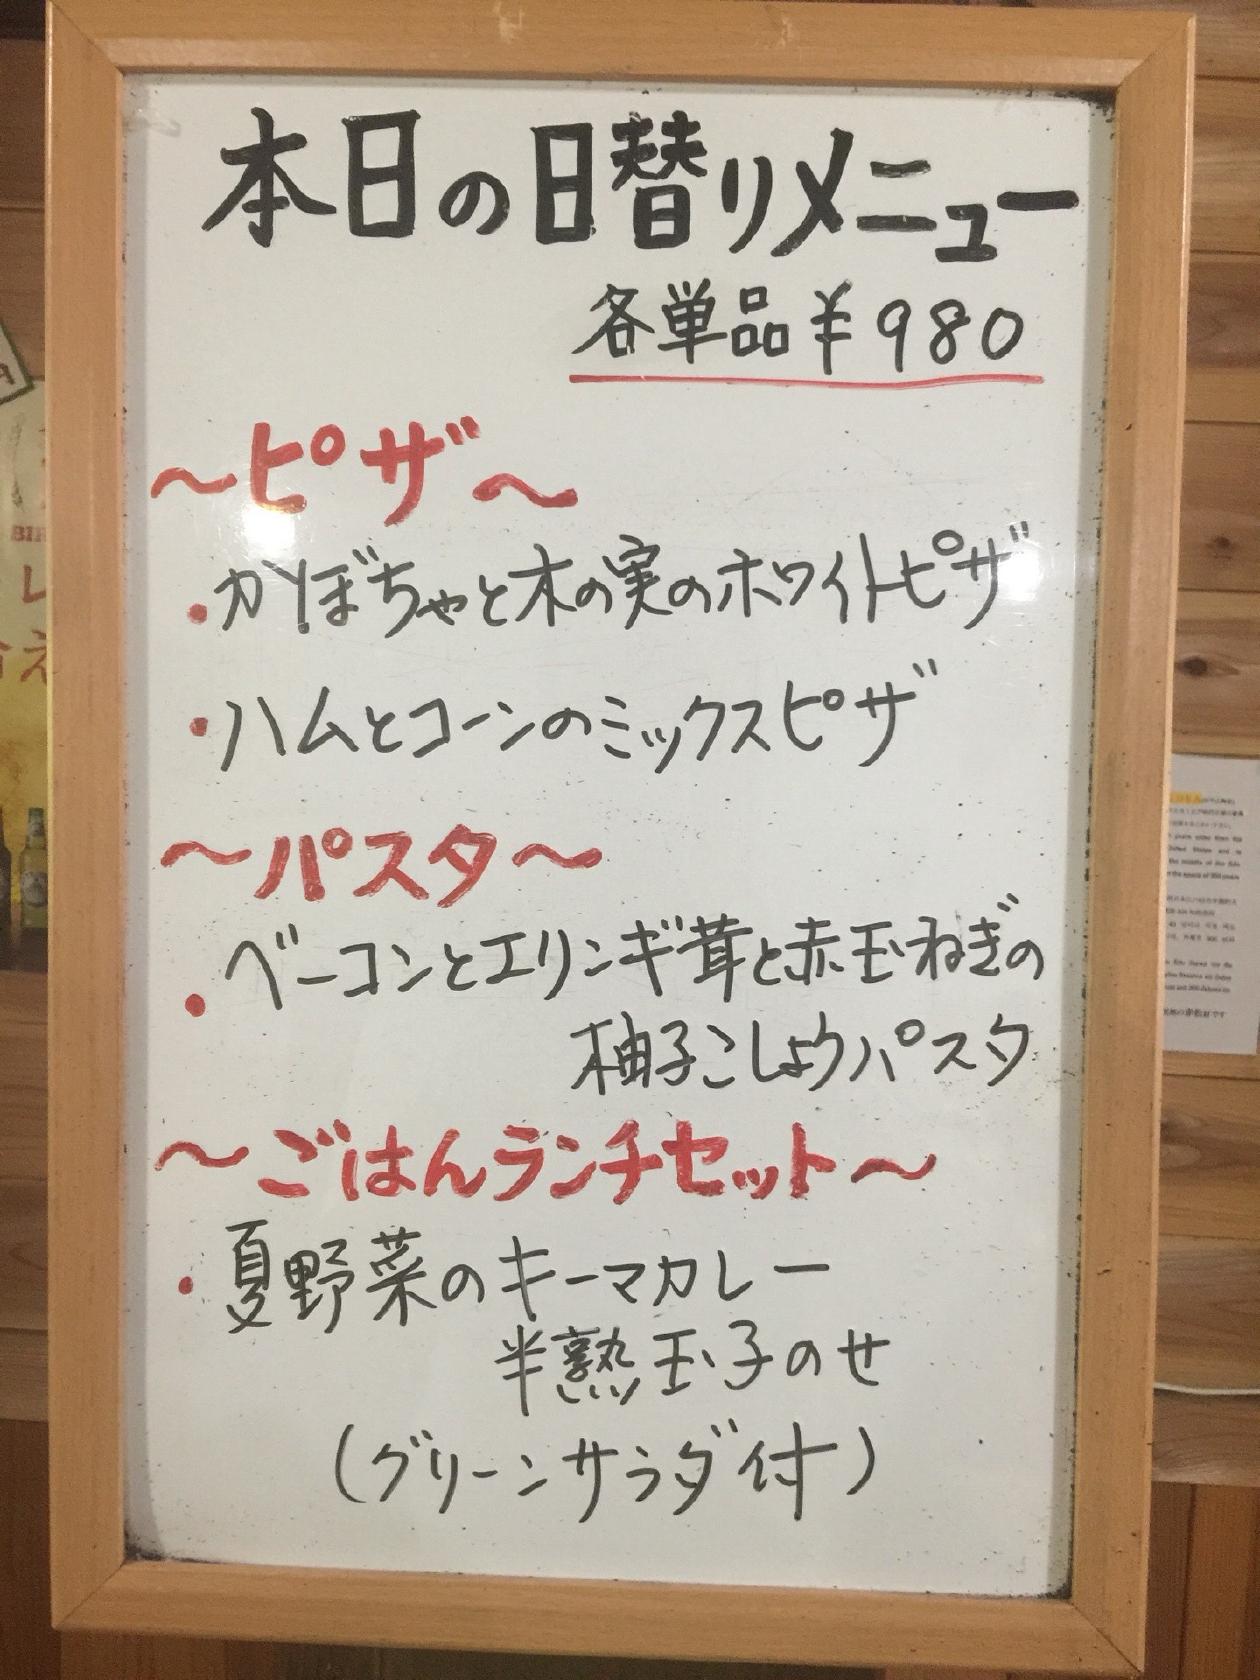 本日の日替りメニュー
各単品¥980
～ピザ～
・かぼちゃと木の実のホワイトピザ
・ハムとコーンのミックスピザ
～パスタ～
・ベーコンとエリンギ茸と赤玉ねぎの
柚子こしょうパスタ
～ごはんランチセット～
・夏野菜のキーマカレー
半熟玉子のせ
(グリーンサラダ付)